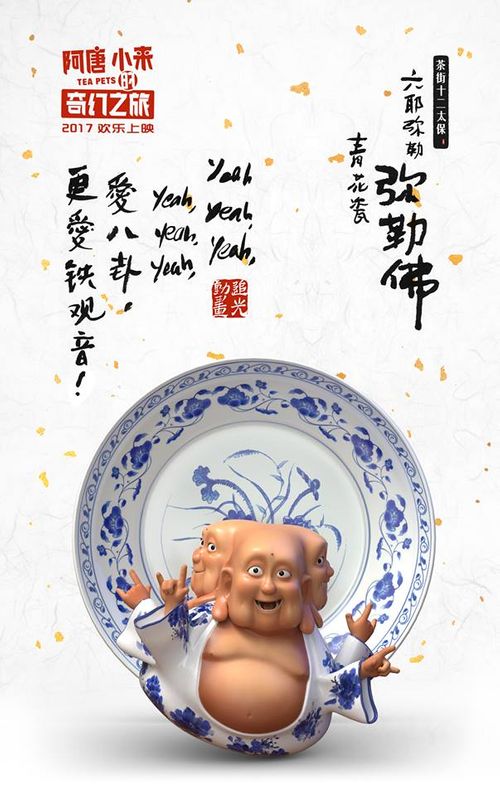 阿唐 小来
TEA PETS 的
奇幻之旅
2017 欢乐上映
茶街十二太保
六耶弥勒
弥勒佛
青花瓷
Yeah
yeah,
yeah,
Yeah,
yeah,
yeah,
愛八卦！
更愛铁观音！
追光
動畫